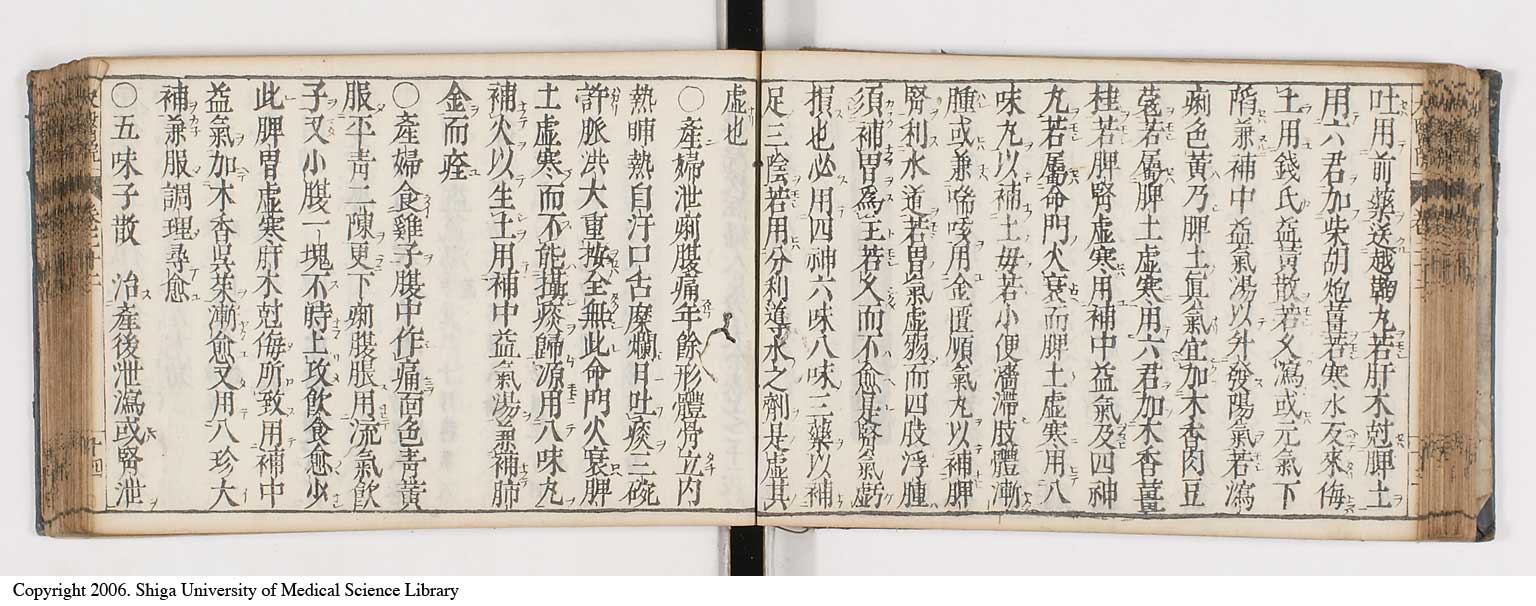 吐用前藥送越鞠丸若肝木尅脾土
用六君加柴胡炮薑若寒水反來侮
土用錢氏益黃散若久瀉或元氣下
陷兼補中益氣湯以升發陽氣若瀉
痢色黃乃脾土眞氣宜加木香肉豆
蔲若屬脾土虛寒用六君加木香薑
桂若脾腎虛寒用補中益氣及四神
丸若屬命門火衰而脾土虛寒用八
味丸以補土母若小便濇滯肢體漸
腫或兼喘咳用金匱腎氣丸以補脾
腎利水道若胃氣虛弱而四肢浮腫
須補胃爲主若久而不愈是腎氣虧
損也必用四神六味八味三藥以補
足三陰若用分利導水之劑是虛其
虛也
○產婦泄痢腹痛年餘形體骨立内
熱晡熱自汗口舌糜爛日吐痰三碗
許脈洪大重按全無此命門火衰脾
土虛寒而不能攝痰歸源用八味丸
補火以生土用補中益氣湯兼補肺
金而痊
○產婦食雞子腹中作痛面色青黃
服平胃二陳更下痢腹脹用流氣飮
子又小腹一塊不時上攻飮食愈少
此脾胃虛寒肝木尅侮所致用補中
益氣加木香吳茱漸愈又用八珍大
補兼服調理尋愈
○五味子散　治產後泄瀉或腎泄
Copyright 2006. Shiga University of Medical Science Library